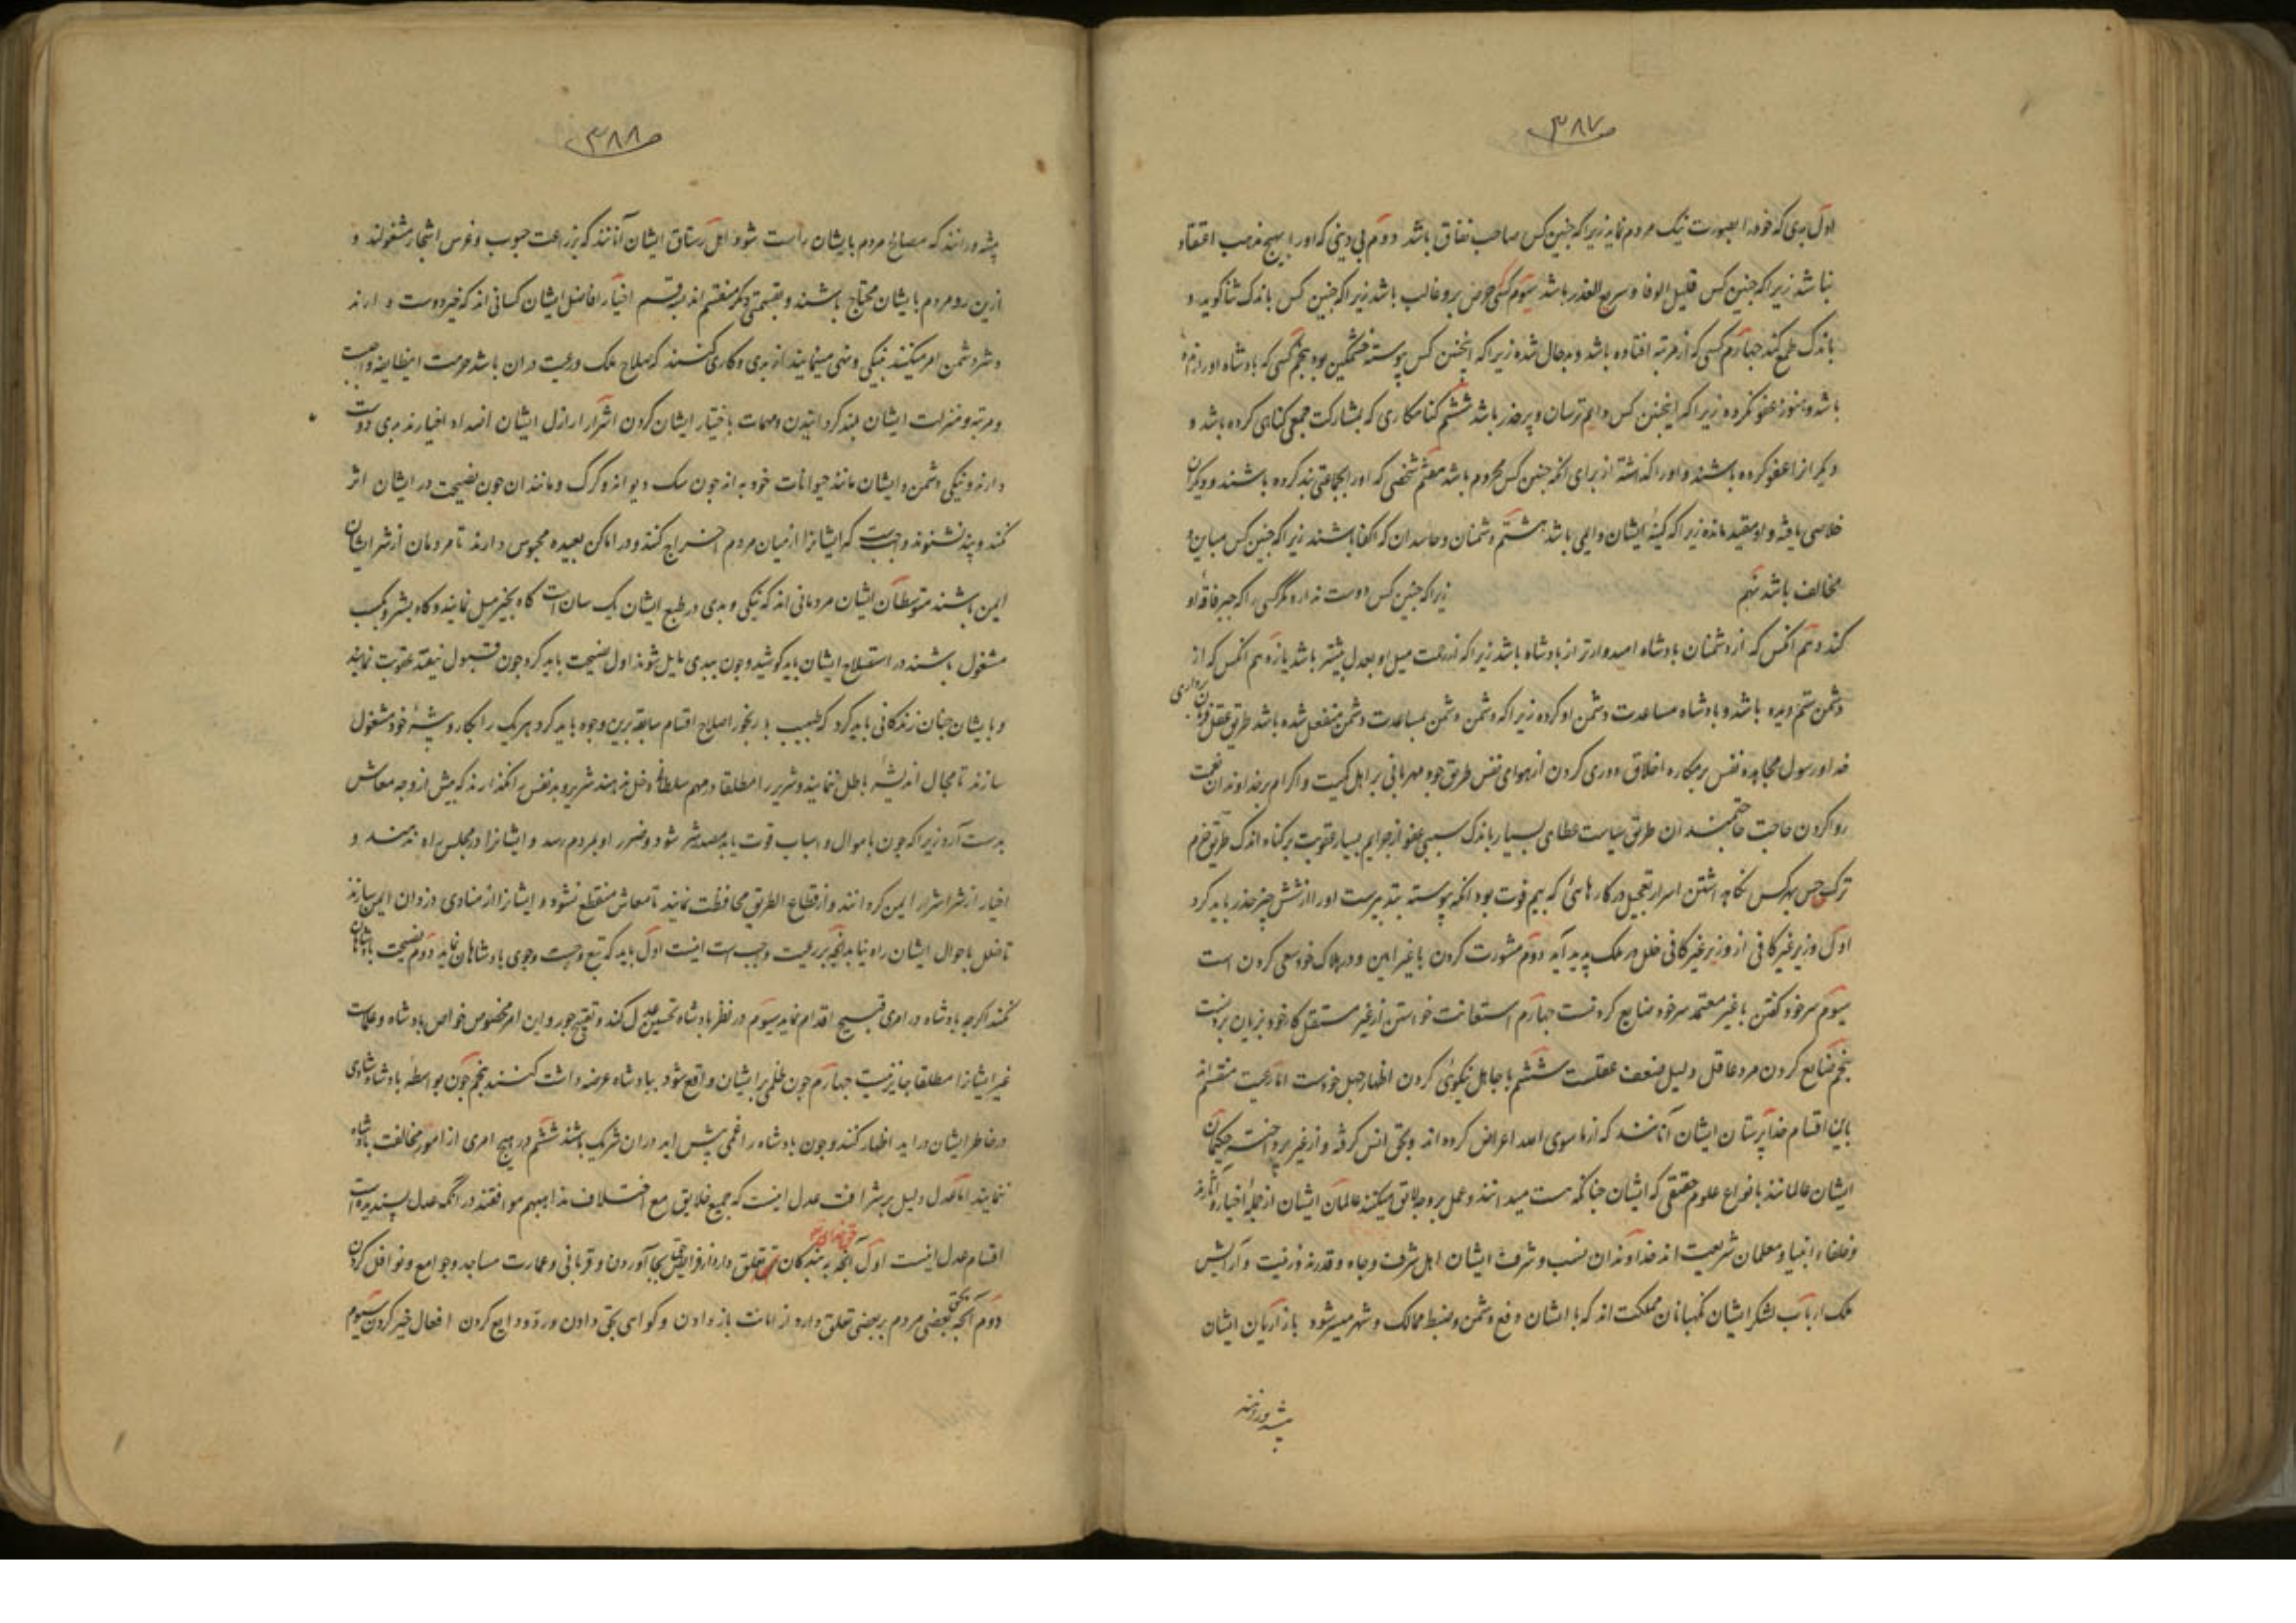 ص ۳۸۷
اول بدی که خود را بصورت نیک بمردم نماید زیرا که چنین کس صاحب نفاق باشد دوم بی دینی که او را بهیچ مذهب اعتقاد
نباشد زیرا که چنین کس قلیل الوفا و سریع الغدر باشد سیوم کسی حرص برو غالب باشد زیرا که چنین کس باندک ثنا گوید و
باندک طمع کند چهارم کسی که از مرتبه افتاده باشد و بدحال شده زیرا که اینچنین کس پیوسته خشمگین بود پنجم کسی که پادشاه او را
باشد و هنوز عفو نکرده زیرا که اینچنین کس دایم ترسان و پر حذر باشد ششم کناهکاری که بمشارکت جمعی کناهی کرده باشد و
دیکر انرا عفو کرده باشند و او را نکذاشته از برای انکه چنین کس محروم باشد هفتم شخصی که او را بجماعتی بند کرده باشند و دیکران
خلاصی یافته و او مقید مانده زیرا که کینهٔ ایشان دایمی باشد هشتم دشمنان و حاسدان که اکفا باشند زیرا که چنین کس مباین و
مخالف باشد نهم زیرا که چنین کس دوست ندارد مکر کسی را که جبر فاقه او
کند دهم انکس که از دشمنان پادشاه امیدوارتر از پادشاه باشد زیرا که از جهت میل او بعدل بیشتر باشد یازدهم انکس که از
دشمن ستم دیده باشد و پادشاه مساعدت دشمن او کرده زیرا که دشمن دشمن بمساعدت دشمن منفعل شده باشد طریق عقل فرمان برداری
خدا و رسول مجاهده نفس بر مکاره اخلاق دوری کردن از هوای نفس طریق جود مهربانی بر اهل کمیت و اکرام بر خداوندان نعمت
روا کردن حاجت حاجتمندان طریق سیاست عطای بسیار باندک سببی عفو از جرایم بسیار عقوبت بر کناه اندک طریق حزم
ترک حس بهرکس نکاهداشتن اسرار تعجیل در کارهائی که بیم فوت بود انکه پیوسته بتدبیرست او را از شش چیز حذر باید کرد
اول وزیر غیر کافی از وزیر غیر کافی خلل در ملک پدید آید دوم مشورت کردن با غیر امین و در هلاک خود سعی کردن است
سیوم سر خود کفتن با غیر معتمد سر خود ضایع کردنست چهارم استعانت خواستن از غیر مستقل کار خود بزیان بردنست
پنجم ضایع کردن مرد عاقل دلیل ضعف عقلست ششم با جاهل نیکوئی کردن اظهار جهل خودست اما رعیت منقسم اند
باین اقسام خداپرستان ایشان آنانند که از ما سوی الله اعراض کرده اند و بحق انس کرفته و از غیر پرداخته حکیمان
ایشان عالمانند بانواع علوم حقیقی که ایشان چنانکه هست میدانند و عمل بر وجه لایق میکنند عالمان ایشان از جمله اخیار و آثارند
و خلفاء انبیا و معلمان شریعت اند خداوندان نسب و شرف ایشان اهل شرف و جاه و قدرند و زینت و آرایش
ملک ارباب لشکر ایشان نکهبانان مملکت اند که با ایشان دفع دشمن و ضبط ممالک و شهر میسر شود بازاریان ایشان
پیشه ورانند
ص ۳۸۸
پیشه ورانند که مصالح مردم بایشان راست شود اهل رستاق ایشان آنانند که بزراعت حبوب و غرس اشجار مشغولند و
ازین رو مردم بایشان محتاج باشند و بقسمتی دیکر منقسم اند بر سه قسم اخیار افاضل ایشان کسانی اند که خیر دوست دارند
و شر دشمن امر میکنند بنیکی و نهی مینمایند از بدی و کاری کنند که صلاح ملک و رعیت دران باشد حرمت اینطایفه واجبست
و مرتبه و منزلت ایشان بلند کردانیدن و مهمات باختیار ایشان کردن اشرار اراذل ایشان اضداد اخیارند بدی دوست
دارند و نیکی دشمن و ایشان مانند حیوانات خود به اند چون سک دیوانه و کرک و مانند ان چون نصیحت در ایشان اثر
نکند و پند نشنوند واجبست که ایشانرا از میان مردم اخراج کنند و در اماکن بعیده محبوس دارند تا مردمان از شر ایشان
ایمن باشند متوسطان ایشان مردمانی اند که نیکی و بدی در طبع ایشان یک سانست کاه بخیر میل نمایند و کاه بشر و بکسب
مشغول باشند در استصلاح ایشان باید کوشید و چون ببدی مایل شوند اول نصیحت باید کرد چون قبول نیفتد عقوبت نمایند
و بایشان چنان زندکانی باید کرد که طبیب با رنجور اصلاح اقسام سابقه برین وجوه باید کرد هر یک را بکار و پیشهٔ خود مشغول
سازند تا مجال اندیشهٔ باطل ننمایند و شریر را مطلقا در مهم سلطانی دخل ندهند شریر و بدنفس را نکذارند که بیش از وجه معاش
بدست آرد زیرا که چون باموال و اسباب قوت یابد مصدر شر شود و ضرر او بمردم رسد و ایشانرا در مجلس راه ندهند و
اخیار از شر اشرار ایمن کردانند و از قطاع الطریق محافظت نمایند تا معاش منقطع نشود و ایشانرا از منادی دزدان ایمن سازند
تا خلل باحوال ایشان راه نیابد انچه بر رعیت واجب است اینست اول باید که تتبع و جست وجوی پادشاهان نماید دوم نصیحت پادشاهان
کنند اکر چه پادشاه در امری قبیح اقدام نماید سیوم در نظر پادشاه تحسین عدل کند و تقبیح جور و این امر مخصوص خواص پادشاه و علماست
غیر ایشانرا مطلقا جایز نیست چهارم چون ظلمی بر ایشان واقع شود بپادشاه عرضه داشت کنند پنجم چون بواسطهٔ پادشاه شادی
در خاطر ایشان دراید اظهار کنند و چون پادشاه را غمی پیش اید دران شریک باشند ششم در هیچ امری از امور مخالفت پادشاه
ننمایند اما عدل دلیل بر شرافت عدل اینست که جمیع خلایق مع اختلاف مذاهبهم موافقند در انکه عدل پسندیده است
اقسام عدل اینست اول آنچه به بندکان تعلق دارد از فرایض حق بجا آوردن و قربانی و عمارت مساجد و جوامع و نوافل کردن
دوم آنچه بحق بعضی مردم بر بعضی تعلق دارد از امانت باز دادن و کواهی بحق دادن و رد ودایع کردن افعال خیر کردن سیوم